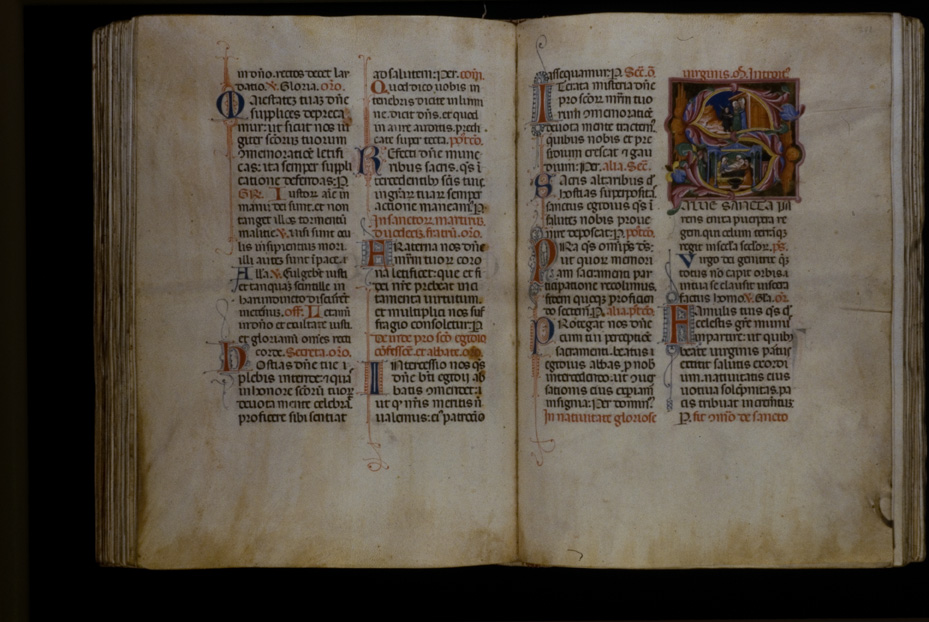 in dño. rectos decet lau
datio. V. Gloria. oro.
Maiestatẽ tuaz dñe
supplices depreca
mur: ut sicut nos iu
giter scõrus tuorum
ɔmemoratiõe letifi
cas: ita semper suppli
catione defendas: P.
GR. Iustorũ aĩe in
manu dei sunt: et non
tanget illos tormentũ
malitie. V. uisi sunt ocu
lis insipientius mori.
illi autẽ sunt ĩ pace.
Alla. V. Fulgebũt iusti
et tanquaz scintille in
harundineto discurrẽt
ineternũ. off. Letami
in dño et exultate iusti.
et gloriami omes recti
corde. Secreta. oro.
Hostias dñe tue
plebis intende: ⁊ quã
in honore scõrũ tuoꝝ
deuota mente celebrat
proficere sibi sentiat
ad salutem: Per. coĩo.
Quod dico uobis in
tenebris dicite in lumi
ne. dicit dñs. et quod
in aure auditis. predi
cate super tecta. postco.
Refecti dñe mune
ribus sacris. qs ĩ
tercedentibus scĩs tuis
in grãrũ tuaꝝ semper
actione maneamus P.
In sanctoꝝ martirus.
duodecĩ fratrũ. oro.
Fraterna nos dñe
mrũm tuoꝝ coro
na letificet: que et fi
dei nr̃e prebeat inci
tamenta uirtutum.
et multiplici nos suf
fragio consoletur: P.
de inde pro scõ egidio
cõfessore et abbate. oro.
Intercessio nos qs
dñe bti egidij ab
batis ɔmendet:
ut q̃ nr̃is meritis nõ
ualemus: eius patrocinio
assequamur: P. Sec̃. õ.
Iterata misteria dñe
pro scõꝝ mrm tuo
rum ɔmemoratiõe
deuota mente tractem
quibus nobis et pre
sidium crescat ⁊ gau
dium: Per. alia. Sec̃.
Sacris altaribus dñe
hostias superpositas
sanctus egidius qs ĩ
salutẽ nobis proue
nire deposcat: P. postco.
Pr̃a qs omps d̃s:
ut quoꝝ memori
am sacramenti par
ticipatione recolimus.
fidem quoqz proficien
do sectemur: P. alia. postco.
Protegat nos dñe
cum tui perceptiõe
sacramenti. beatus
egidius abbas p̃ nob
intercedendo: ut ⁊ ɔuer
sationis eius experiam
insignia: Per dominũ.
In natiuitate gloriose
uirginis. oĩ. Introitꝰ.
Salue sancta pa
rens enixa puerpera re
gem. qui celum terrãqz
regit in secla secloꝝ. ps.
Virgo dei genitrix q̃z
totus nõ capit orbis ĩ
tua se clausit uiscera
factus homo. V. Gla. or̃.
Famulis tuis qs dñe
celestis gr̃e munus
impartire: ut quibꝰ
beate uirginis partus
extitit salutis exordi
um. natiuitatis eius
uotiua solempnitas. pa
cis tribuat incremẽtũ:
P. fit ɔmõ de sancto